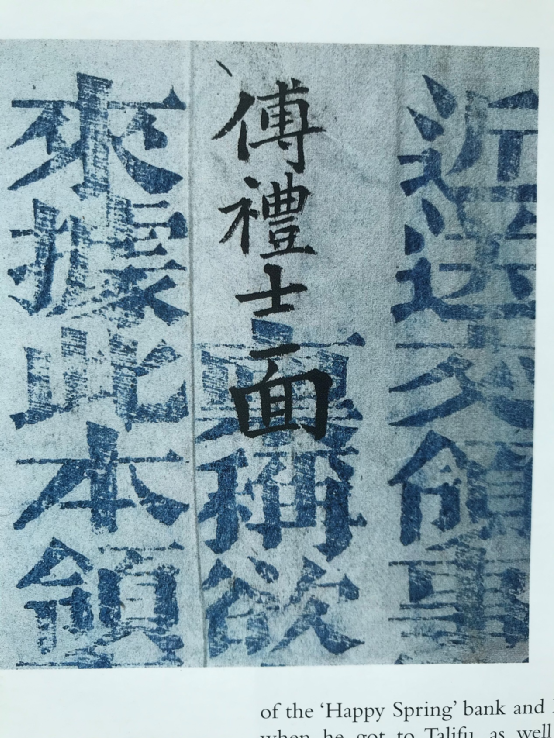 近送交領事
傅禮士面稟稱欲
來據此本領
of the ‘Happy Spring’ bank and
when he got to Talifu, as well